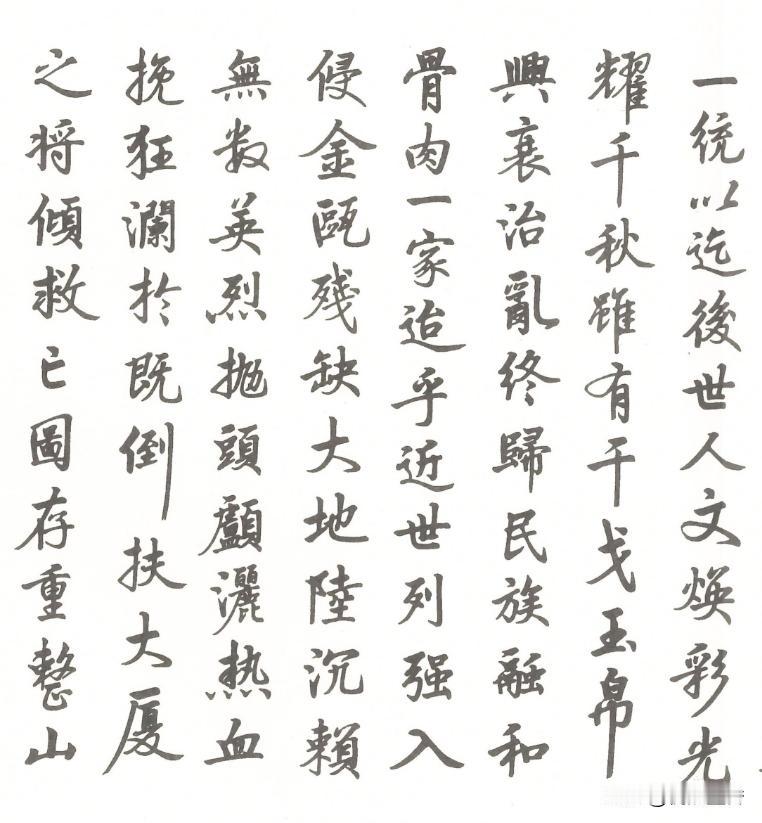 一統以迄後世人文焕彩光
耀千秋雖有干戈玉帛
興衰治亂終歸民族融和
骨肉一家迨乎近世列强入
侵金甌殘缺大地陸沉賴
無数英烈抛頭顱灑热血
挽狂瀾於既倒扶大厦
之将傾救亡圖存重整山